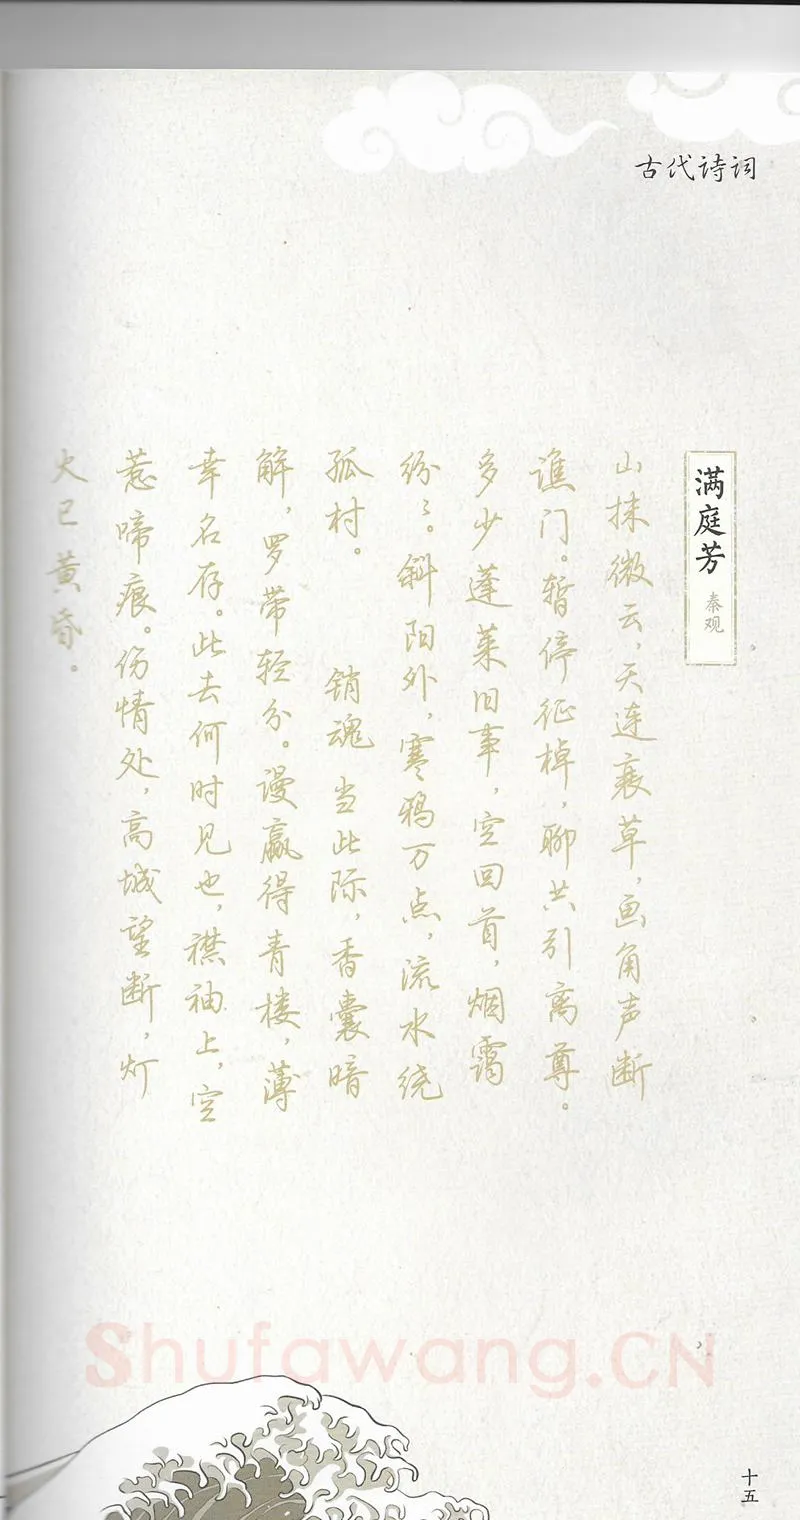 古代诗词
满庭芳 秦观
山抹微云，天连衰草，画角声断
谯门。暂停征棹，聊共引离尊。
多少蓬莱旧事，空回首，烟霭
纷纷。斜阳外，寒鸦万点，流水绕
孤村。 销魂当此际，香囊暗
解，罗带轻分。谩赢得青楼，薄
幸名存。此去何时见也，襟袖上，空
惹啼痕。伤情处，高城望断，灯
火已黄昏。
Shufawang.CN
十五